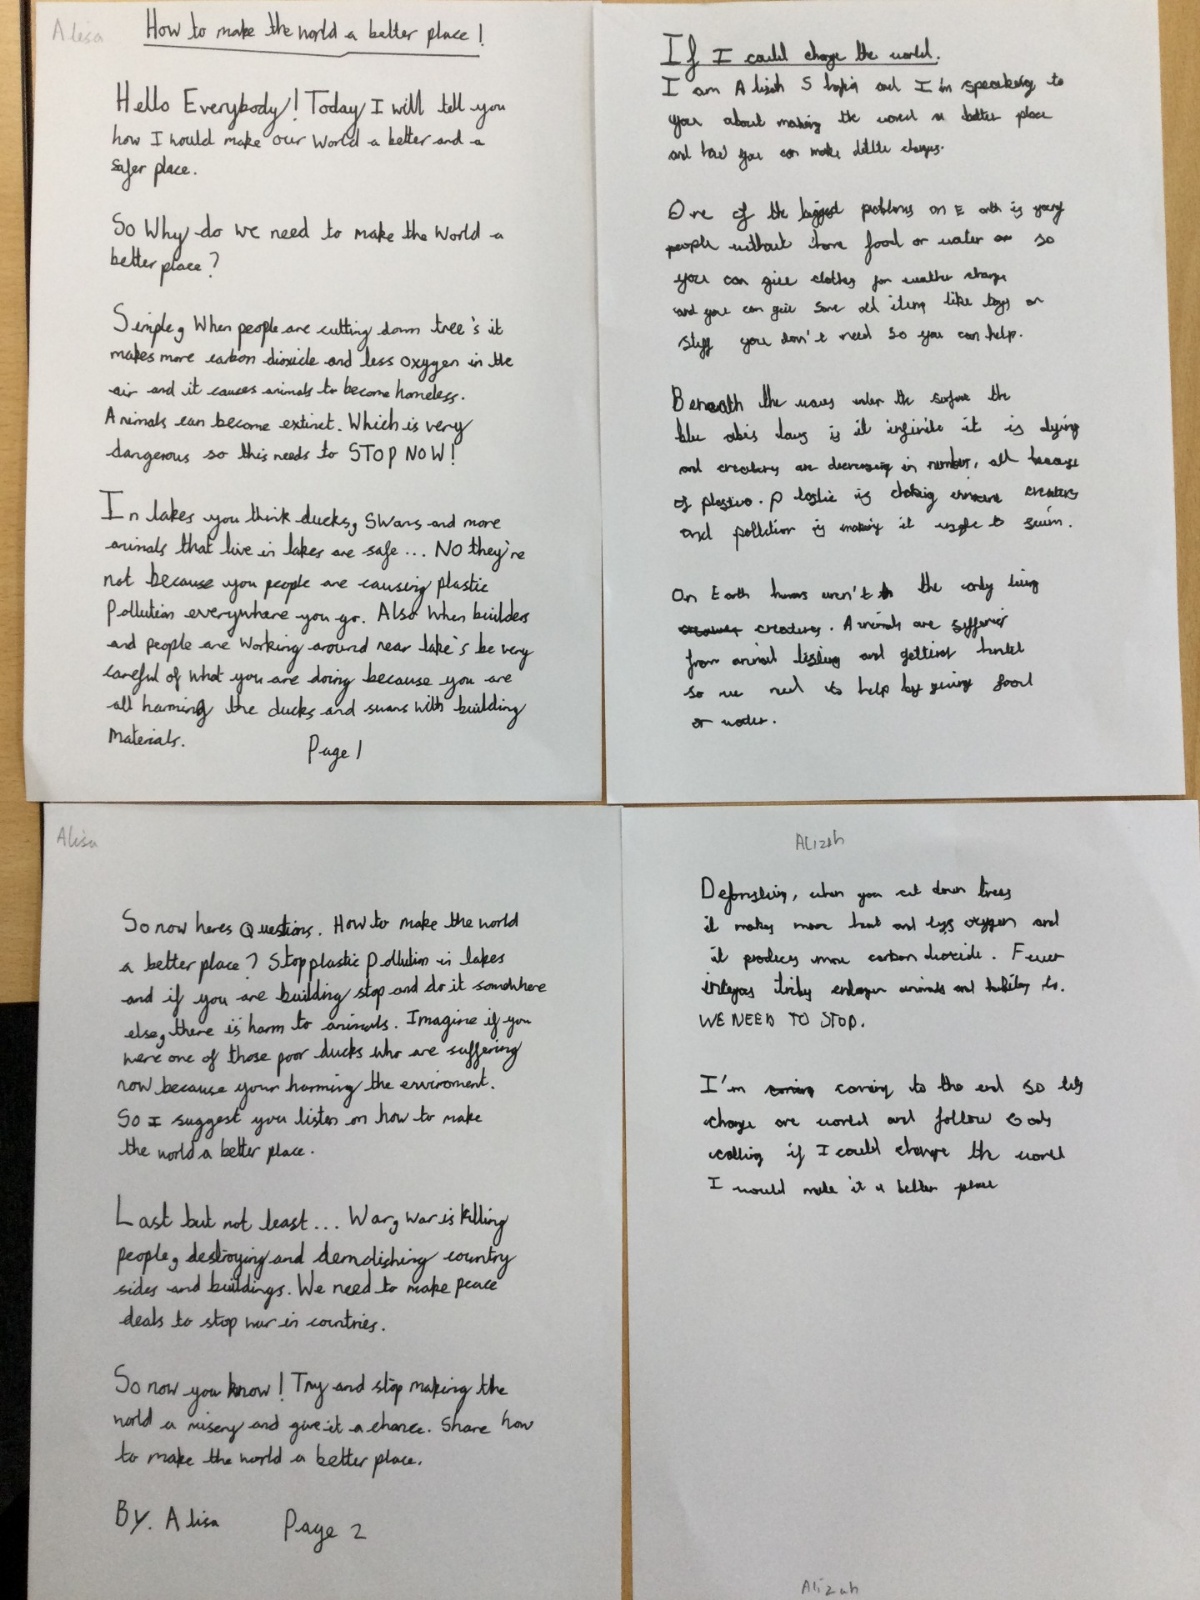 Alisa
How to make the world a better place!
Hello Everybody! Today I will tell you
how I would make our World a better and a
safer place.
So Why do we need to make the World a
better place?
Simple, When people are cutting down tree's it
makes more carbon dioxide and less oxygen in the
air and it causes animals to become homeless.
Animals can become extinct. Which is very
dangerous so this needs to STOP NOW!
In lakes you think ducks, Swans and more
animals that live in lakes are safe... NO they're
not because you people are causing plastic
Pollution everywhere you go. Also When builders
and people are Working around near lake's be very
careful of what you are doing because you are
all harming the ducks and swans with building
Materials.
Page 1
Alisa
So now heres Questions. How to make the world
a better place? Stop plastic Pollution in lakes
and if you are building stop and do it somwhere
else, there is harm to animals. Imagine if you
were one of those poor ducks who are suffering
now because your harming the enviroment.
So I suggest you listen on how to make
the world a better place.
Last but not least... War, War is killing
people, destroying and demolishing country
sides and buildings. We need to make peace
deals to stop war in countries.
So now you know! Try and stop making the
world a misery and give it a chance. Share how
to make the world a better place.
By. Alisa
Page 2
If I could change the world.
I am Alizah S and I'm speaking to
you about making the world a better place
and how you can make changes.
One of the biggest problems on Earth is
people without food or water so
you can give clothes for weather change
and you can give some old items like toys or
stuff you don't need so you can help.
Beneath the waves under the surface the
blue is it infinite it is dying
and creatures are decreasing in number, all because
of plastic. Plastic is choking creaters
and pollution is making it unsafe to swim.
On Earth humans aren't the only living
creatures. Animals are
from animal and getting
so we need to help by giving food
or water.
Alizah
when you cut down trees
it makes more heat and less oxygen and
it produces more carbon dioxide. Fewer
animals and
WE NEED TO STOP.
I'm coming to the end so lets
change are world and follow Gods
calling if I could change the world
I would make it a better place
Alizah